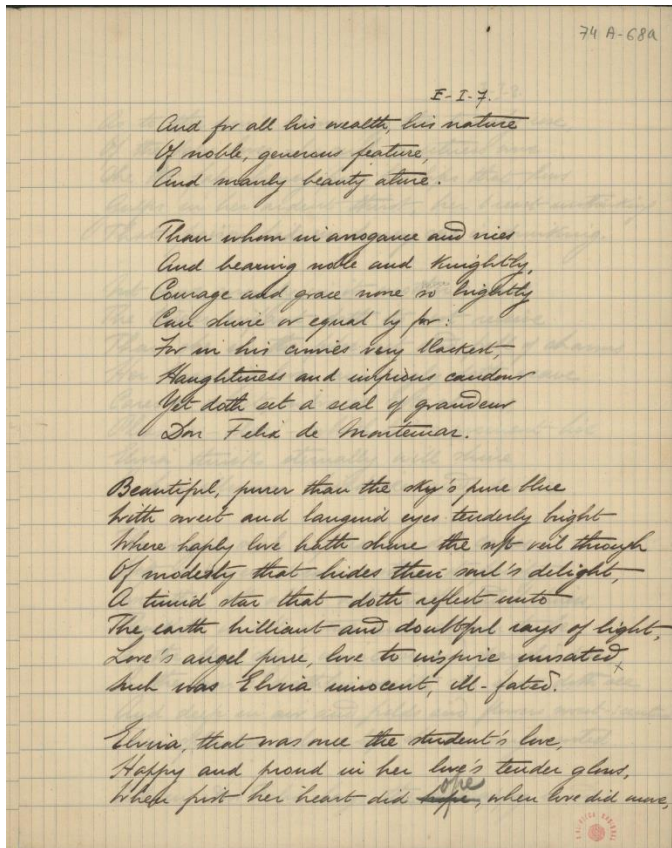 74 A-68a
E-I-7.
And for all his wealth, his nature
Of noble, generous feature,
And manly beauty
Than whom in arrogance and vices
And bearing noble and knightly,
Courage and grace none so brightly
Can shine or equal by far:
For in his crimes very blackest,
Haughtiness and impious candour
Yet doth set a seal of grandeur
Don Felix de Montemar.
Beautiful, purer than the sky's pure blue
With sweet and languid eyes tenderly bright
Where haply love hath shone the soft veil through
Of modesty that hides their soul's delight,
A timid star that doth reflect unto
The earth brilliant and doubtful rays of light,
Love's angel pure, love to inspire unsated x
Such was Elvira innocent, ill-fated.
Elvira, that was once the student's love,
Happy and proud in her love's tender glow,
ope
When first her heart did hope, when love did move,